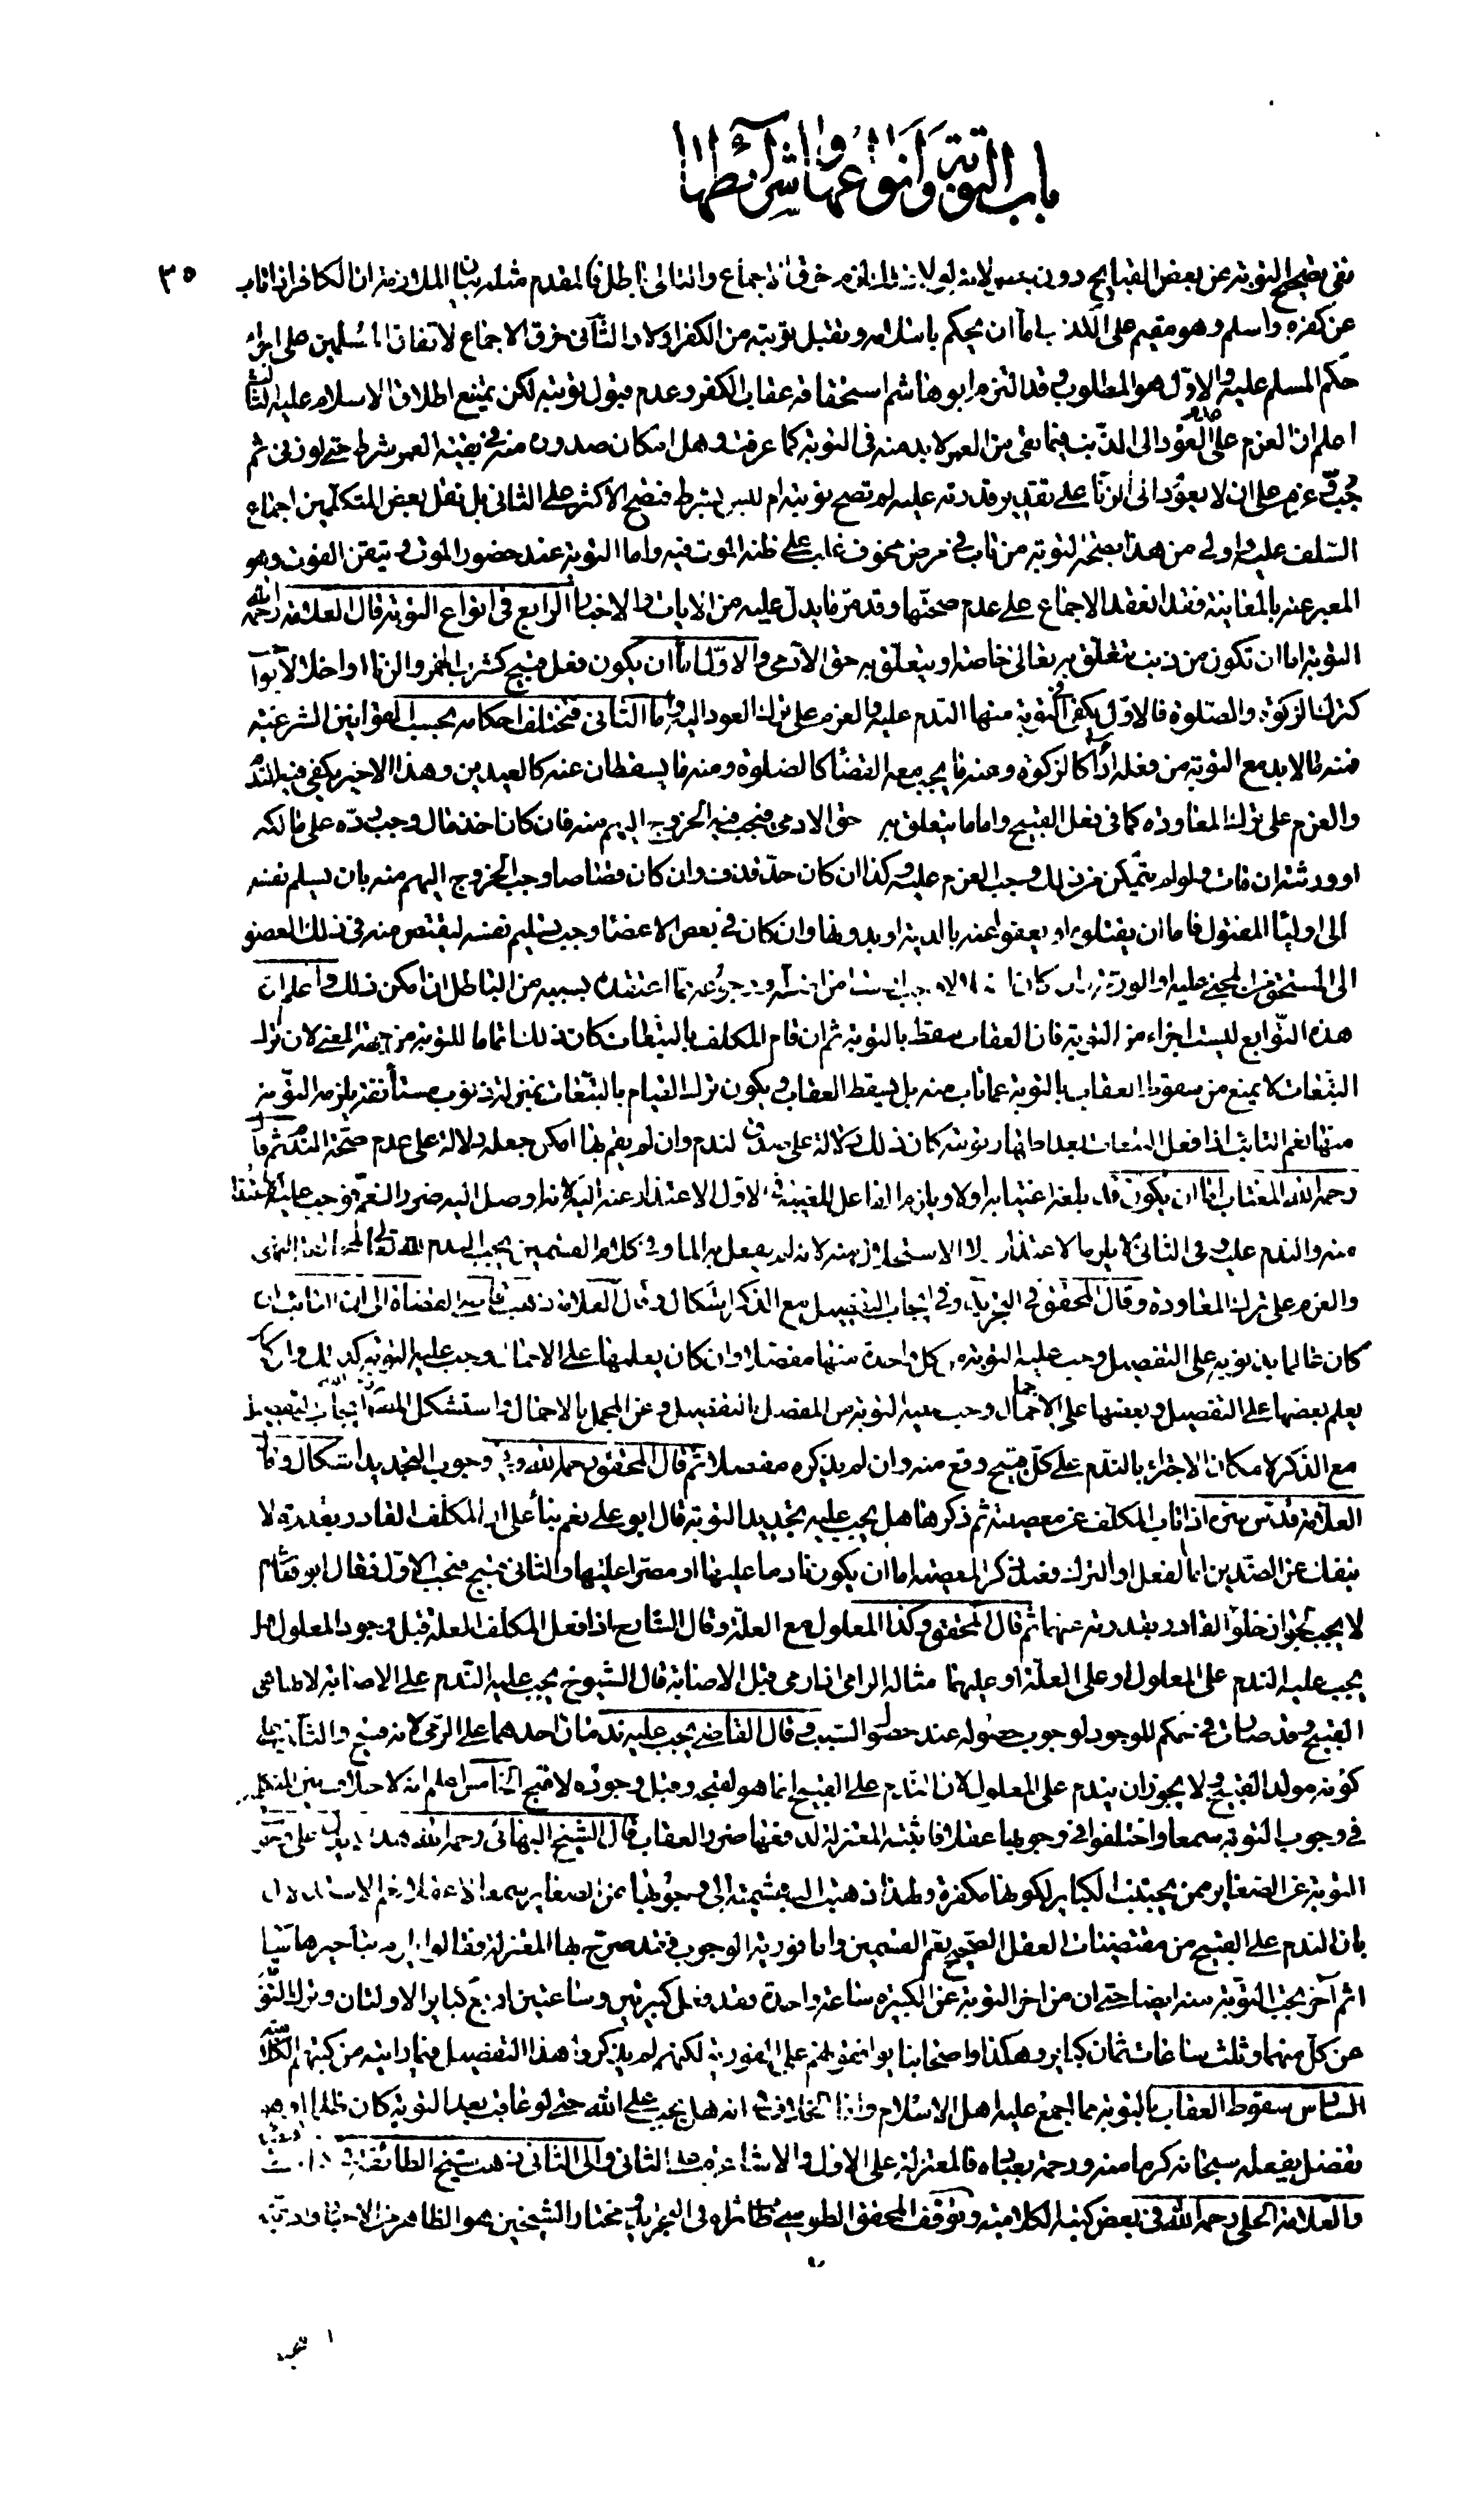 باب التوبة وأنواعها وشرائطها
٣٥
نفى تصحيح التوبة عن بعض القبايح دون بعض لانه لولا ذلك لزم خرق الاجماع والتالى باطل فالمقدم مثله بيان الملازمة ان الكافر اذا تاب
عن كفره واسلم وهو مقيم على الكذب فاما ان يحكم باسلامه وتقبل توبته من الكفر اولا والثانى خرق الاجماع لاتفاق المسلمين على اجراء
حكم المسلم عليه والاول هو المطلوب وقد التزم ابوهاشم استحقاقه عقاب الكفر وعدم قبول توبته لكن يمتنع اطلاق الاسلام عليه الثالث
اعلم ان العزم على عدم العود الى الذنب فيما بقى من العمر لابد منه فى التوبة كما عرفت وهل امكان صدوره منه فى بقية العمر شرط حتى لو زنى ثم
جبّ وعزم على ان لا يعود الى الزنا على تقدير قدرته عليه لم تصح توبته ام ليس بشرط فتصح الاكثر على الثانى بل نقل بعض المتكلمين اجماع
السلف عليه واولى من هذا بصحة التوبة من تاب فى مرض مخوف غلب على ظنه الموت فيه واما التوبة عند حضور الموت وتيقن الفوت وهو
المعبر عنه بالمعاينة فقد انعقد الاجماع على عدم صحتها وقد مر ما يدل عليه من الايات والاخبار الرابع فى انواع التوبة قال العلامة رحمه الله
التوبة اما ان تكون من ذنب يتعلق به تعالى خاصة او يتعلق به حق الآدمى والاول اما ان يكون فعل قبيح كشرب الخمر والزنا او اخلالا بواجب
كترك الزكوة والصلوة فالاول يكفى فى التوبة منها الندم عليه والعزم على ترك العود اليه واما الثانى فتختلف احكامه بحسب القوانين الشرعية
فمنه ما لابد مع التوبة من فعله اداء كالزكوة ومنه ما يجب معه القضاء كالصلوة ومنه ما يسقطان عنه كالعيدين وهذا الاخير يكفى فيه الندم
والعزم على ترك المعاودة كما فى فعل القبيح واما ما يتعلق به حق الادمى فيجب فيه الخروج اليهم منه فان كان اخذ مال وجب رده على مالكه
او ورثته ان مات ولو لم يتمكن من ذلك وجب العزم عليه وكذا ان كان حد قذف وان كان قصاصا وجب الخروج اليهم منه بان يسلم نفسه
الى اولياء المقتول فاما ان يقتلوه او يعفوا عنه بالدية او بدونها وان كان فى بعض الاعضاء وجب تسليم نفسه ليقتص منه فى ذلك العضو
الى المستحق من المجنى عليه او الورثة وان كان اضلالا وجب ارشاد من اضله ورجوعه مما اعتقده بسببه من الباطل ان امكن ذلك واعلم ان
هذه التوابع ليست اجزاء من التوبة فان العقاب سقط بالتوبة ثم ان قام المكلف بالتبعات كان ذلك تماما للتوبة من جهة المعنى لان ترك
التبعات لا يمنع من سقوط العقاب بالتوبة عما تاب منه بل يسقط العقاب ويكون ترك القيام بالتبعات بمنزلة ذنوب مستأنفة يلزمه التوبة
منها نعم التائب اذا فعل التبعات بعد اظهار توبته كان ذلك دلالة على صدق الندم وان لم يقم بها امكن جعله دلالة على عدم صحة الندم ثم قال
رحمه الله المغتاب اما ان يكون قد بلغه اغتيابه اولا ويلزم الفاعل للغيبة فى الاول الاعتذار عنه اليه لانه اوصل اليه ضرر الغم فوجب عليه الاعتذار
منه والندم عليه وفى الثانى لا يلزمه الاعتذار ولا الاستحلال منه لانه لم يفعل به الما وفى كلا القسمين يجب الندم لله تعالى لمخالفة النهى
والعزم على ترك المعاودة وقال المحقق فى التجريد وفى ايجاب التفصيل مع الذكر اشكال وقال العلامة ذهب قاضى القضاة الى ان التائب ان
كان عالما بذنوبه على التفصيل وجب عليه التوبة عن كل واحدة منها مفصلا وان كان يعلمها على الاجمال وجب عليه التوبة كذلك وان كان
يعلم بعضها على التفصيل وبعضها على الاجمال وجب عليه التوبة من المفصل بالتفصيل وعن المجمل بالاجمال واستشكل المصنف رحمه الله ايجاب التفصيل
مع الذكر لامكان الاجتزاء بالندم على كل قبيح وقع منه وان لم يذكره مفصلا ثم قال المحقق رحمه الله وفى وجوب التجديد اشكال وقال
العلامة قدس سره اذا تاب المكلف عن معصيته ثم ذكرها هل يجب عليه تجديد التوبة قال ابو على نعم بناء على ان المكلف القادر بقدرة لا
ينفك عن الضدين اما الفعل او الترك فعند ذكر المعصية اما ان يكون نادما عليها او مصرا عليها والثانى قبيح فيجب الاول وقال ابوهاشم
لا يجب لجواز خلو القادر بقدرته عنهما ثم قال المحقق وكذا المعلول مع العلة وقال الشارح اذا فعل المكلف العلة قبل وجود المعلول هل
يجب عليه الندم على المعلول او على العلة او عليهما مثاله الرامى اذا رمى قبل الاصابة قال الشيوخ يجب عليه الندم على الاصابة لانها هى
القبيح وقد صارت فى حكم الموجود لوجوب حصوله عند حصول السبب وقال القاضى يجب عليه ندمان احدهما على الرمى لانه قبيح والثانى على
كونه مولد القبيح ولا يجوز ان يندم على المعلول لان الندم على القبيح انما هو لقبحه وقبل وجوده لا قبح الخامس اعلم انه لا خلاف بين المتكلمين
فى وجوب التوبة سمعا واختلفوا فى وجوبها عقلا فاثبته المعتزلة لدفعها ضرر العقاب قال الشيخ البهائى رحمه الله هذا لا يدل على وجوب
التوبة عن الصغاير ممن يجتنب الكباير لكونها مكفرة ولهذا ذهبت البهشمية الى وجوبها عن الصغاير سمعا لا عقلا نعم الاستدلال
بان الندم على القبيح من مقتضيات العقل الصحيح يعم القسمين واما فورية الوجوب فقد صرح بها المعتزلة فقالوا يلزمه بتأخيرها ساعة
اثم آخر يجب التوبة منه ايضا حتى ان من اخر التوبة عن الكبيرة ساعة واحدة فقد فعل كبيرتين وساعتين اربع كباير الاولتان وترك التوبة
عن كل منهما وثلث ساعات ثمان كباير وهكذا واصحابنا يوافقونهم على الفورية لكنهم لم يذكروا هذا التفصيل فيما رايته من كتبهم الكلامية
السادس سقوط العقاب بالتوبة مما اجمع عليه اهل الاسلام وانما الخلاف فى انه هل يجب على الله حتى لو عاقب بعد التوبة كان ظلما او هو
تفضل يفعله سبحانه كرما منه ورحمة بعباده فالمعتزلة على الاول والاشاعرة على الثانى والى الثانى ذهب شيخ الطائفة
والعلامة الحلى رحمه الله فى بعض كتبه الكلامية وتوقف المحقق الطوسى طاب ثراه فى التجريد ومختار الشيخين هو الظاهر من الاخبار